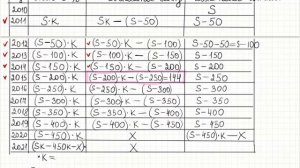 2010 S
2011 S·K SK – (S-50) S-50
2012 (S-50)·K (S-50)·K – (S-100) S-50-50=S-100
2013 (S-100)·K (S-100)·K – (S-150) S-150
2014 (S-150)·K (S-150)·K – (S-200) S-200
2015 (S-200)·K (S-200)·K – (S-250)=144 S-250
2016 (S-250)·K (S-250)·K – (S-300) S-300
2017 (S-300)·K (S-300)·K – (S-350) S-350
2018 (S-350)·K (S-350)·K – (S-400) S-400
2019 (S-400)·K (S-400)·K – (S-450) S-450
2020 (S-450)·K X (S-450)·K – X
2021 (SK-450K-X) X
·K =